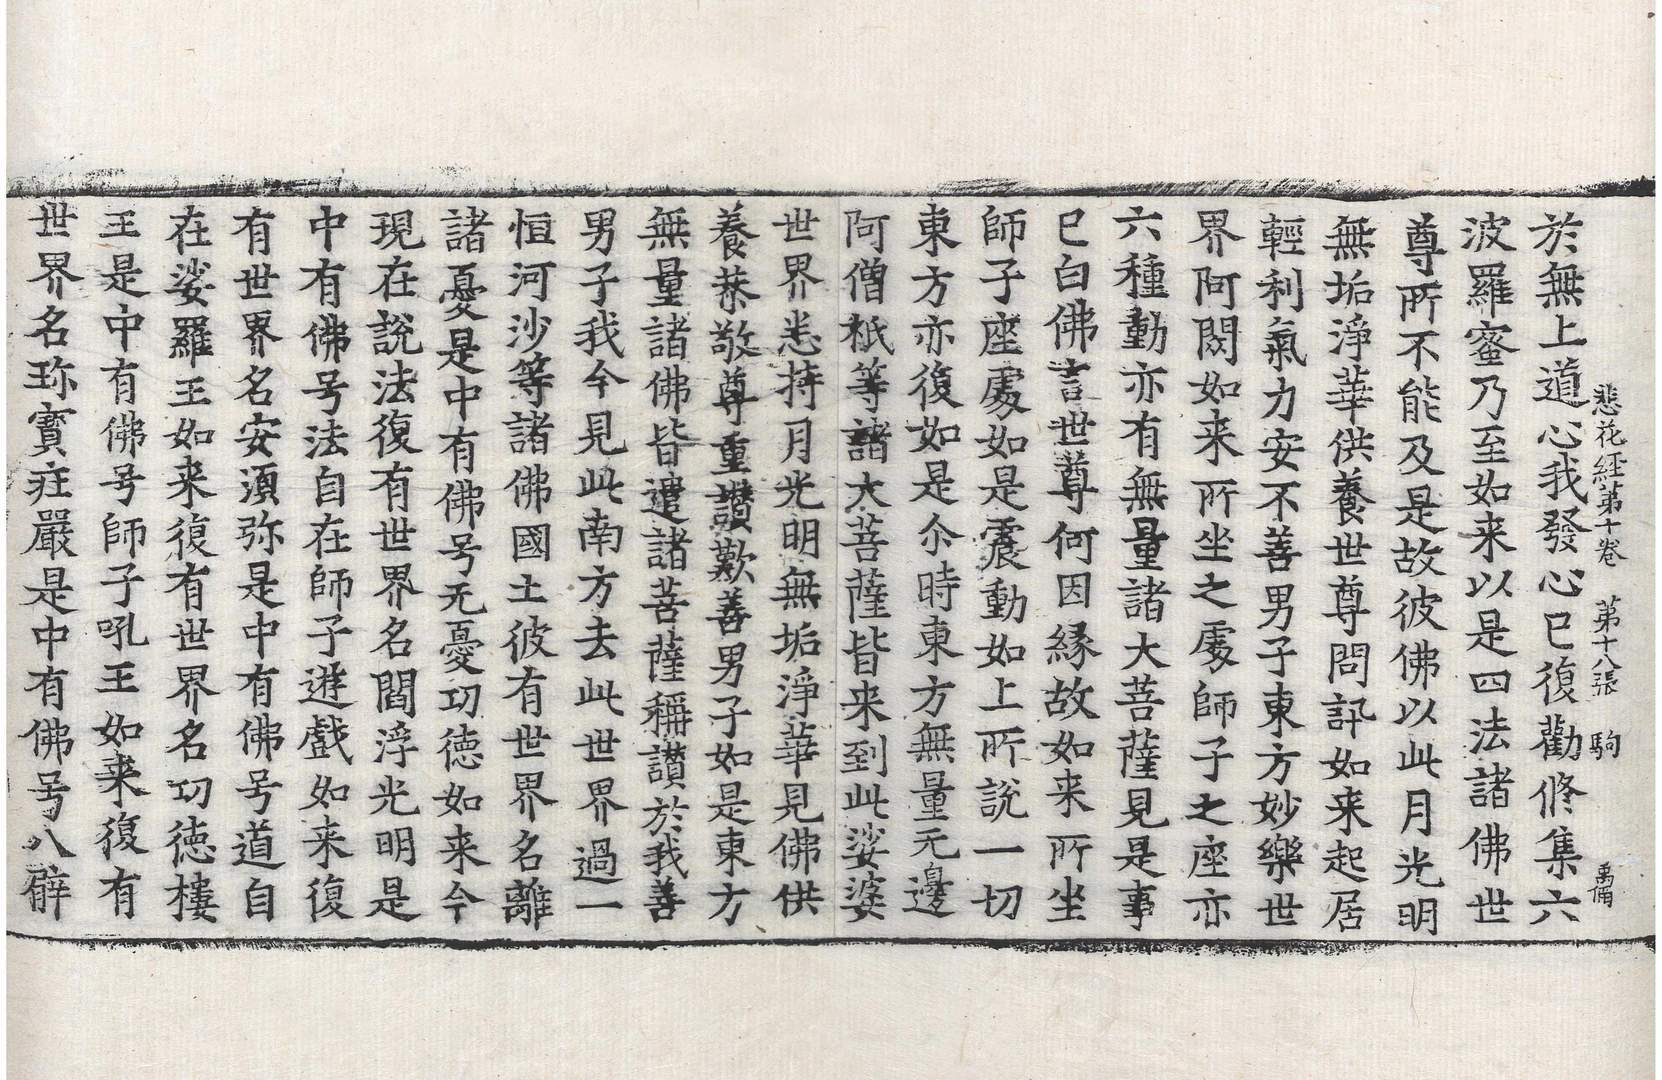 悲花經第十卷　第十八張　駒　禹偁
於無上道心我發心已復勸修集六
波羅蜜乃至如来以是四法諸佛世
尊所不能及是故彼佛以此月光明
無垢淨華供養世尊問訊如来起居
輕利氣力安不善男子東方妙樂世
界阿閦如来所坐之處師子之座亦
六種動亦有無量諸大菩薩見是事
已白佛言世尊何因緣故如来所坐
師子座處如是震動如上所說一切
東方亦復如是尒時東方無量无邊
阿僧祇等諸大菩薩皆来到此娑婆
世界悉持月光明無垢淨華見佛供
養恭敬尊重讃歎善男子如是東方
無量諸佛皆遣諸菩薩稱讃於我善
男子我今見此南方去此世界過一
恒河沙等諸佛國土彼有世界名離
諸憂是中有佛号无憂功德如来今
現在説法復有世界名閻浮光明是
中有佛号法自在師子遊戲如来復
有世界名安須弥是中有佛号道自
在娑羅王如来復有世界名功德樓
王是中有佛号師子吼王如来復有
世界名珎寶莊嚴是中有佛号八臂